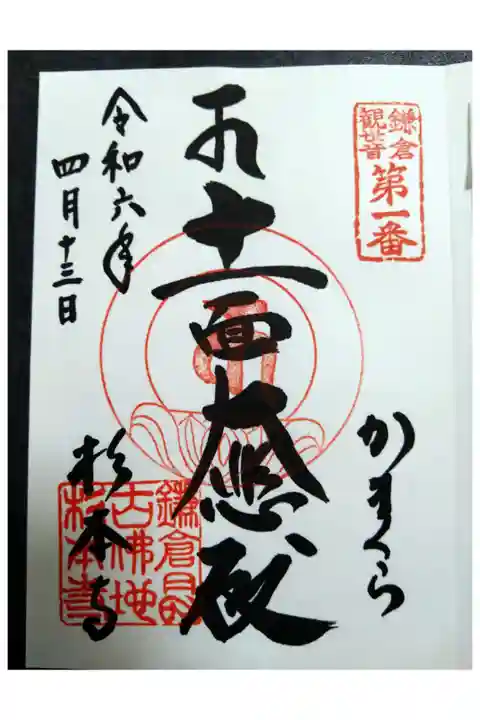 鎌倉
観世音
第一番
かまくら
十一面大悲殿
令和六年
四月十三日
杉本寺
鎌倉最
古佛地
杉本寺